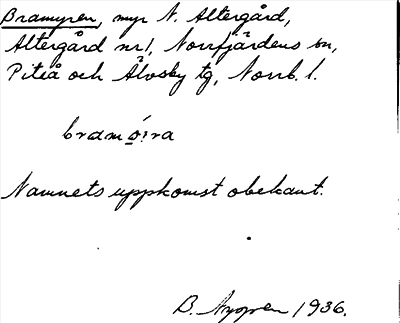 Bramyren, myr N. Altergård,
Altergård nr 1, Norrfjärdens sn,
Piteå och Älvsby tg, Norrb. l.
bramó̱:ra
Namnets uppkomst obekant.
B. Nygren 1936.